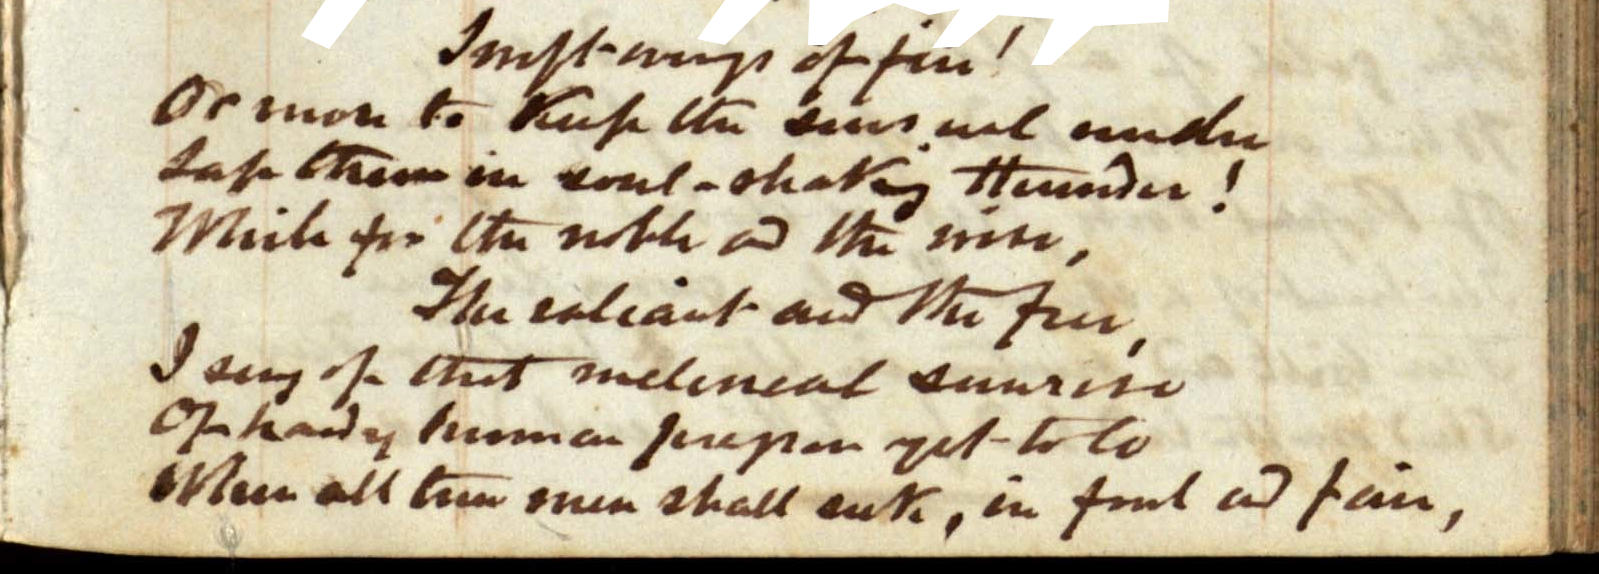 Swift-wings of fire!
Or more to keep the sensual under
Lap them in soul-shaking thunder!
While for the noble and the wise,
The valiant and the free,
I sing of that millennial sunrise
Of hardy human progress yet to be
When all true men shall seek, in foul and fair,